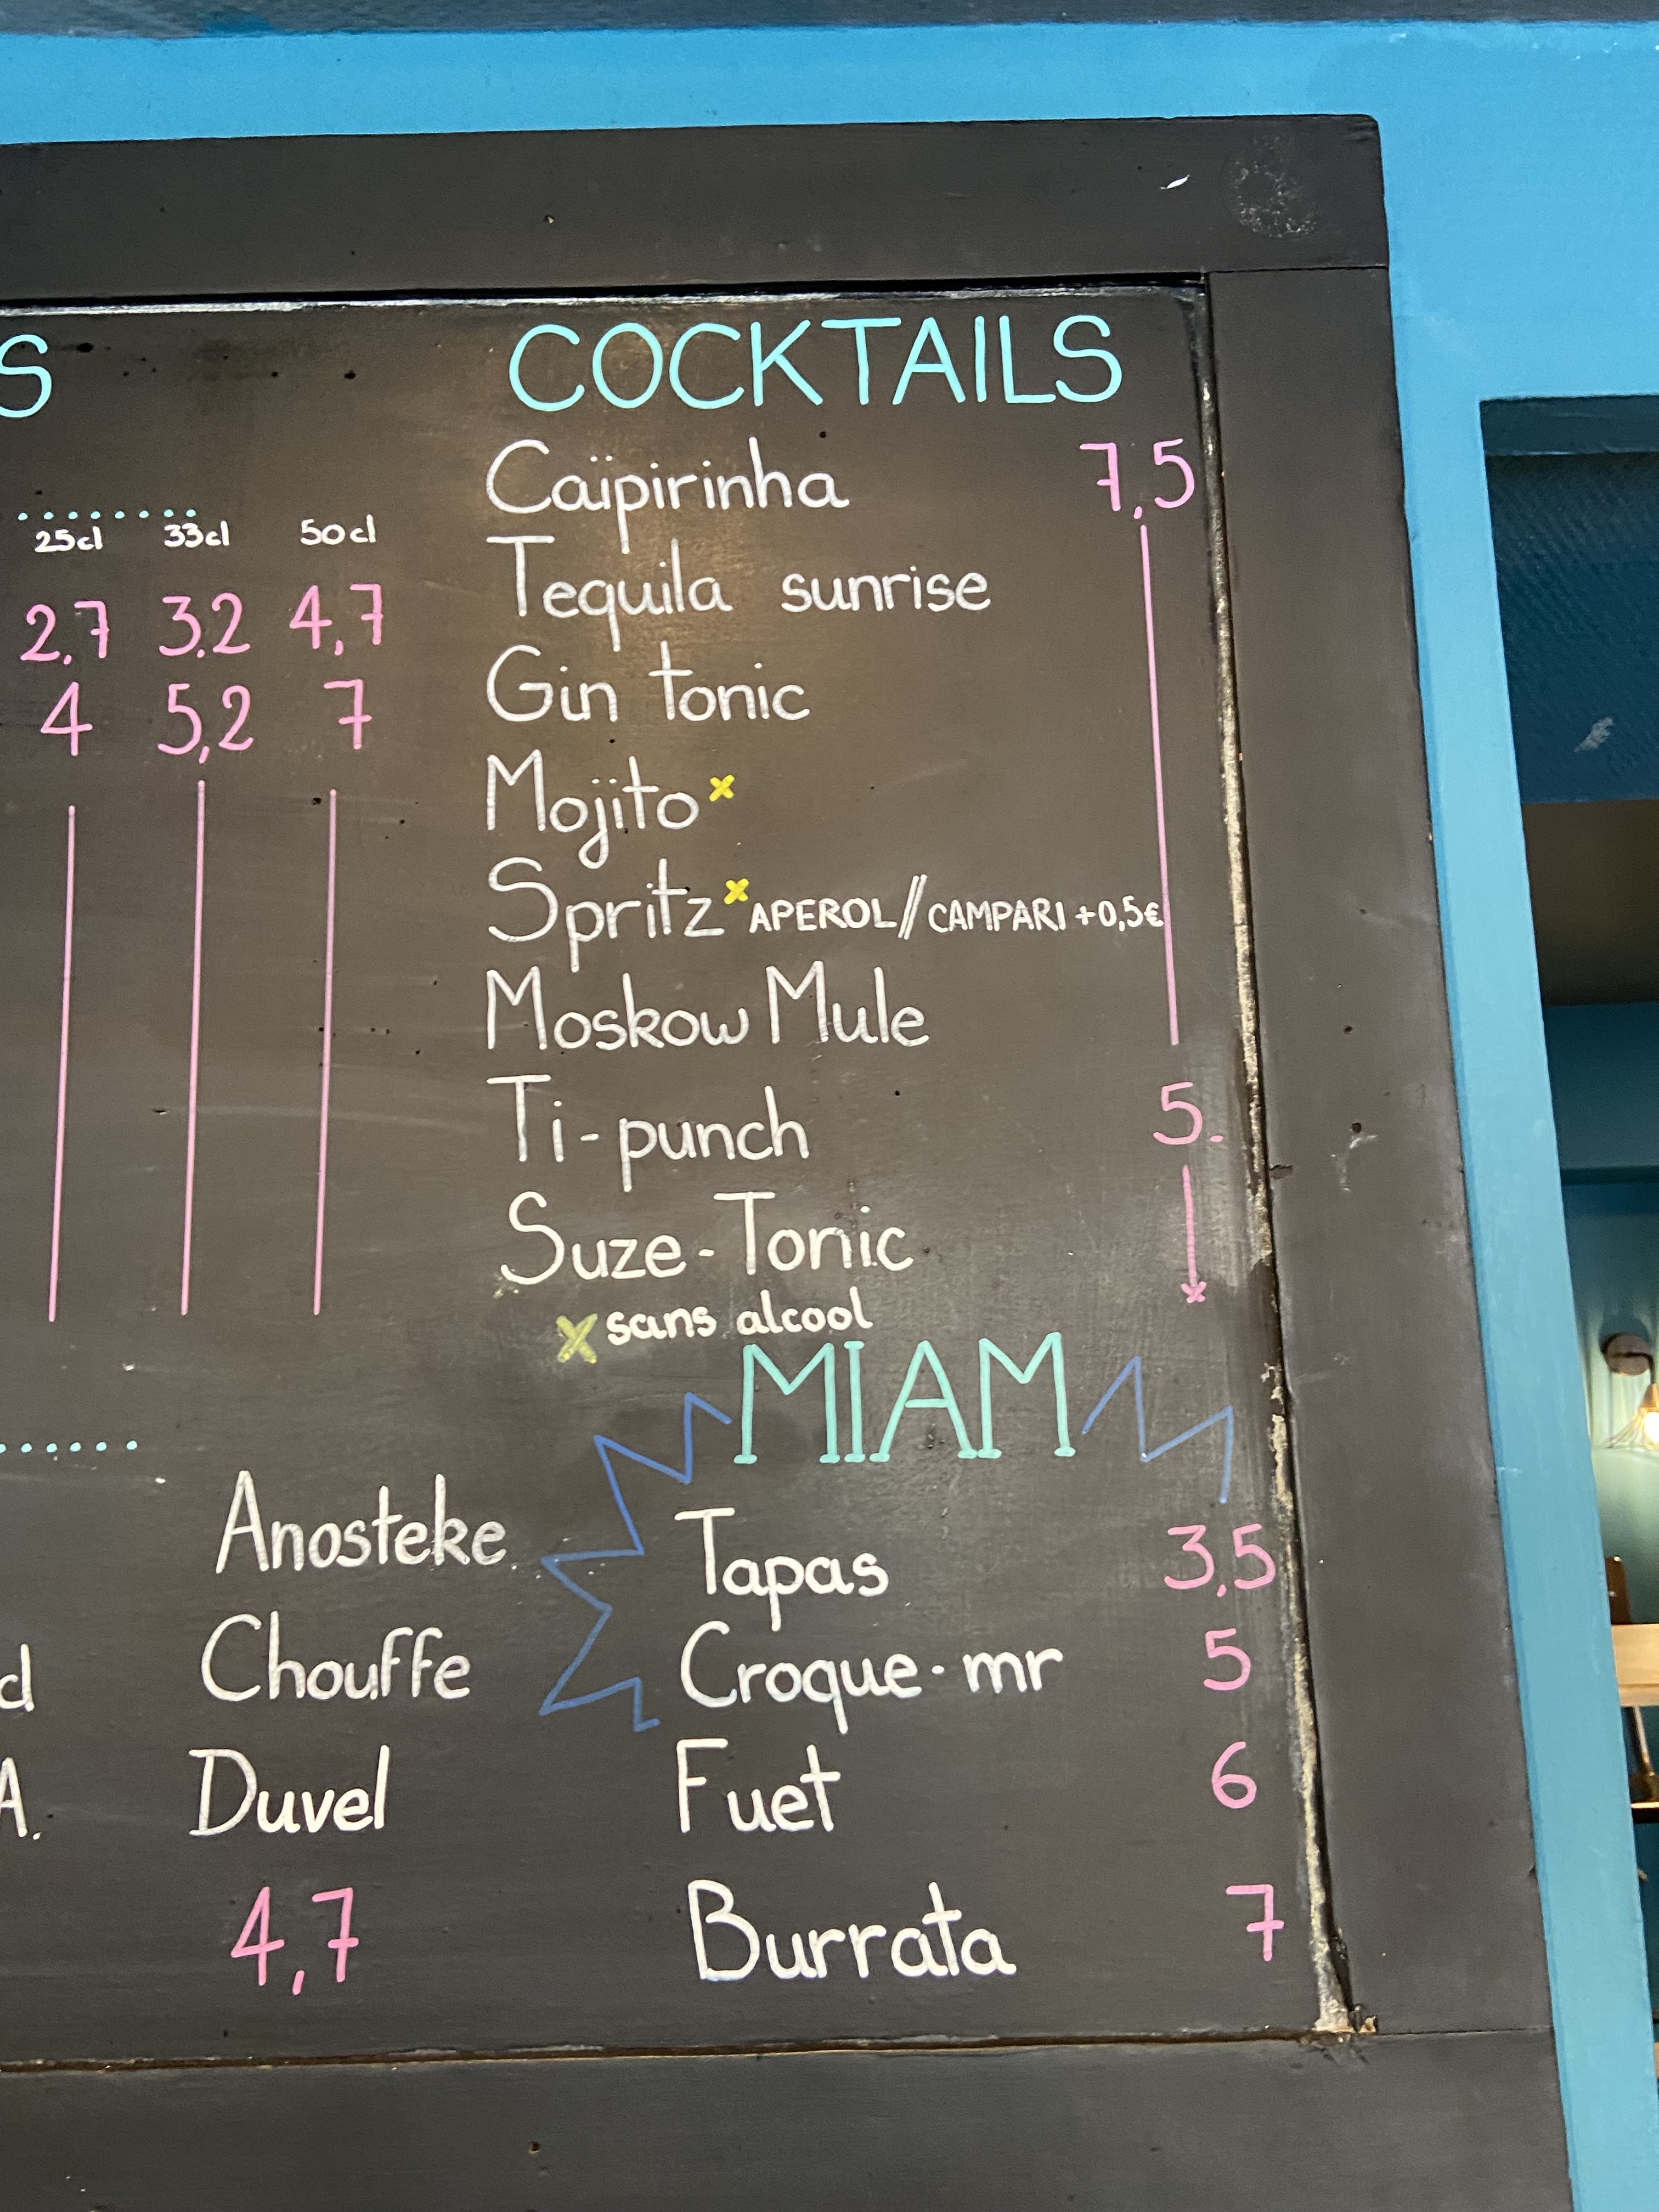 S
25cl 33cl 50cl
2,7 3.2 4,7
4 5,2 7
COCKTAILS
Caïpirinha 7,5
Tequila sunrise
Gin tonic
Mojito x
Spritz x APEROL // CAMPARI +0,5€
Moskow Mule
Ti-punch 5.
Suze-Tonic
x sans alcool
Anosteke
d Chouffe
A. Duvel
4,7
MIAM
Tapas 3,5
Croque-mr 5
Fuet 6
Burrata 7